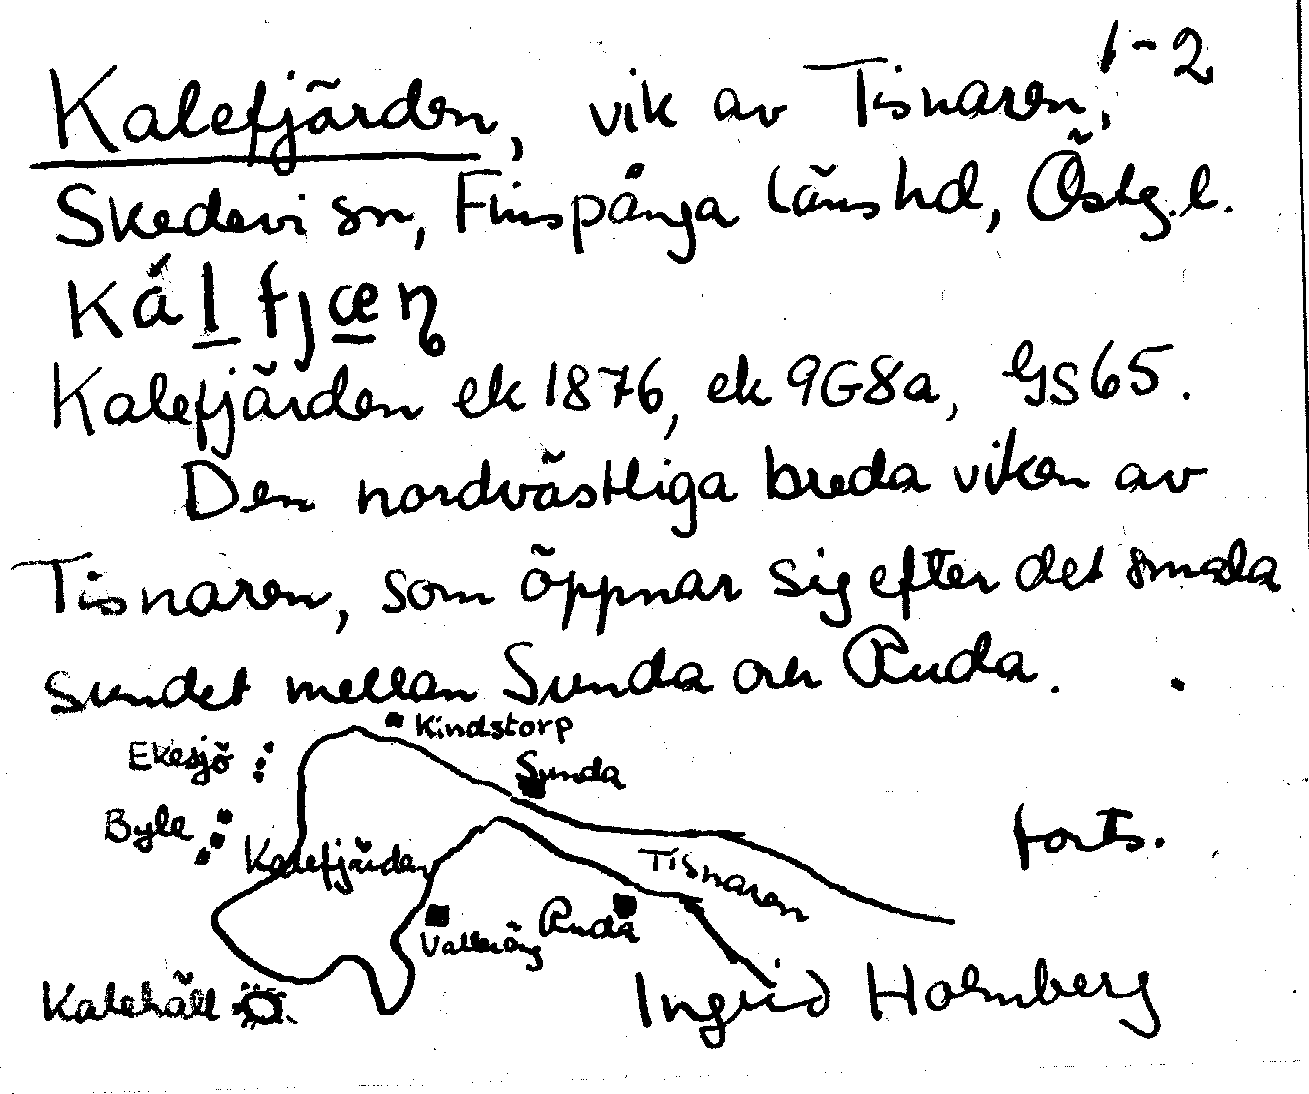 1-2
Kalefjärden, vik av Tisnaren,
Skedevi sn, Finspånga läns hd, Östg.l.
Kál fjæņ
Kalefjärden ek 1876, ek 9G8a, GS65.
Den nordvästliga breda viken av
Tisnaren, som öppnar sig efter det smala
sundet mellan Sunda och Ruda.
Kindstorp
Ekesjö
Sunda
Byle
forts.
Kalefjärden
Tisnaren
Ruda
Valleräng
Kalehäll
Ingrid Holmberg